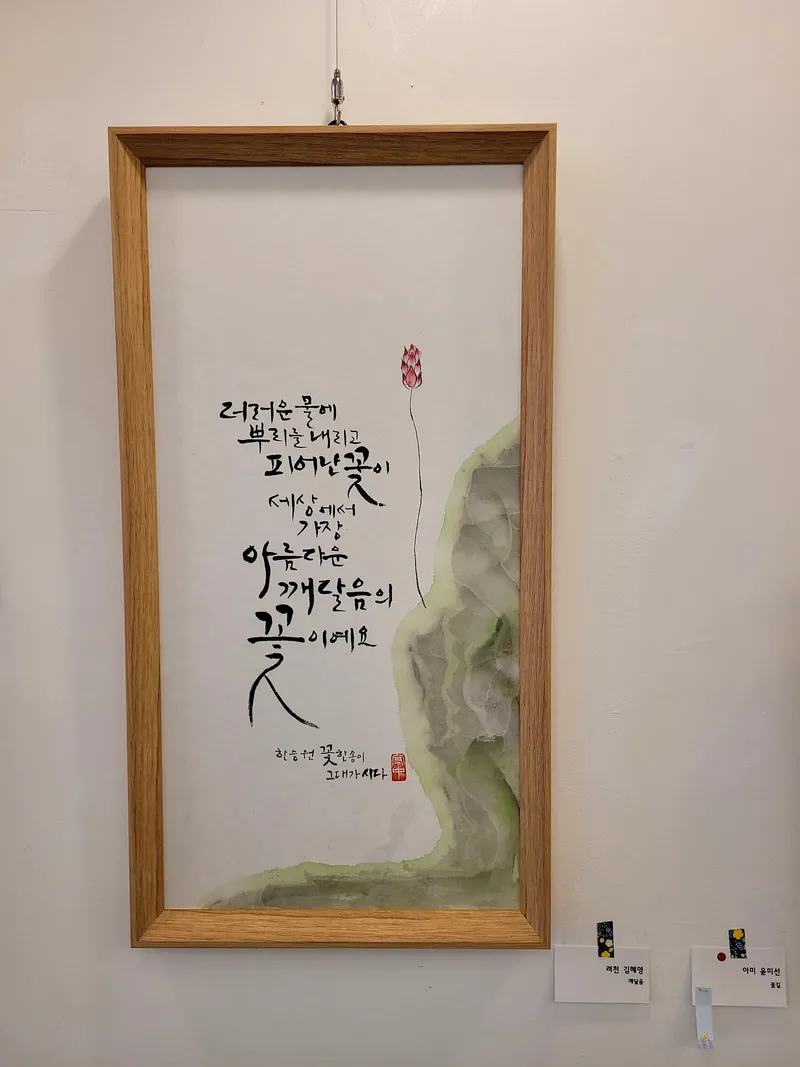 더러운 물에
뿌리를 내리고
피어난 꽃이
세상에서
가장
아름다운
깨달음의
꽃이예요
한승원 꽃한송이
그대가 시다
려천 김혜영
깨달음
아미 윤미선
꽃길